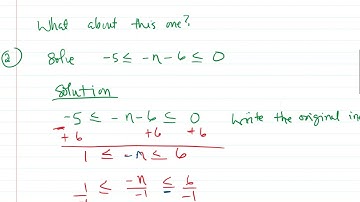 What about this one?
② Solve -5 ≤ -n - 6 ≤ 0
Solution
-5 ≤ -n - 6 ≤ 0 Write the original
+6 +6 +6
1 ≤ -n ≤ 6
1 ≤ -n/-1 ≤ 6/-1